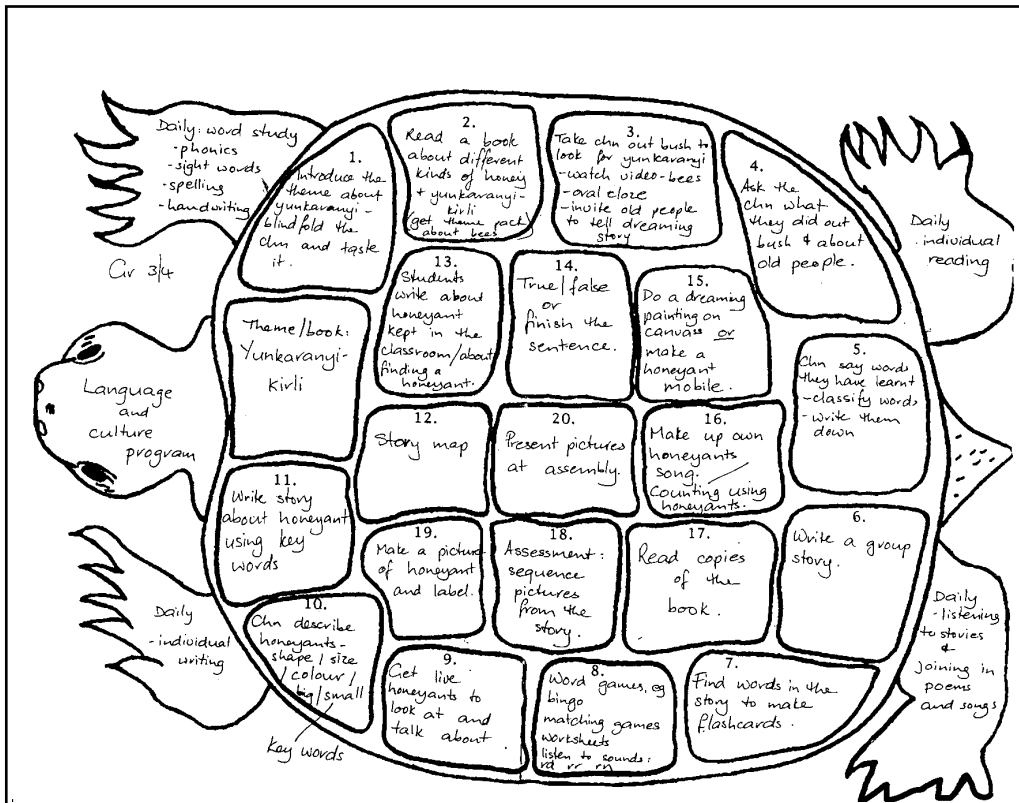 Daily: word study
-phonics
-sight words
-spelling
-handwriting
Gr 3/4
Language
and
culture
program
Theme/book:
Yunkaranyi-
kirli
1.
Introduce the
theme about
yunkaranyi -
blindfold the
chn and taste
it.
2.
Read a book
about different
kinds of honey
+ yunkaranyi-
kirli
(get theme pack
about bees)
3.
Take chn out bush to
look for yunkaranyi
-watch video-bees
-oral cloze
-invite old people
to tell dreaming
story
4.
Ask the
chn what
they did out
bush & about
old people.
Daily
-individual
reading
5.
Chn say words
they have learnt
-classify words
-write them
down
6.
Write a group
story.
7.
Find words in the
story to make
flashcards.
8.
Word games, eg
bingo
matching games
worksheets
listen to sounds:
rd rr rn
9.
Get live
honeyants to
look at and
talk about.
10.
Chn describe
honeyants-
shape / size
/ colour /
big / small
Key words
11.
Write story
about honeyant
using key
words
12.
Story map
13.
Students
write about
honeyant
kept in the
classroom/about
finding a
honeyant.
14.
True/false
or
finish the
sentence.
15.
Do a dreaming
painting on
canvass or
make a
honeyant
mobile.
16.
Make up own
honeyants
song.
Counting using
honeyants.
17.
Read copies
of the
book.
18.
Assessment:
sequence
pictures
from the
story.
19.
Make a picture
of honeyant
and label.
20.
Present pictures
at assembly.
Daily
-individual
writing
Daily
-listening
to stories
&
joining in
poems
and songs